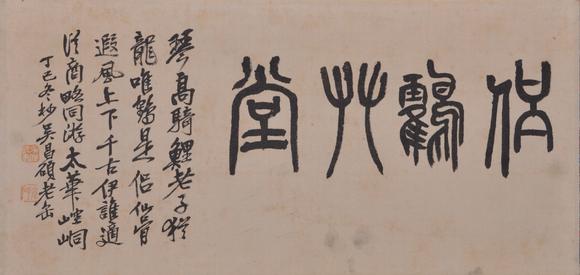 侣鶴艸堂
琴高騎鯉老子猶
龍唯鶴是侣仙骨
遐風上下千古伊誰適
從商略同游太華崆峒
丁巳冬杪吴昌碩老缶